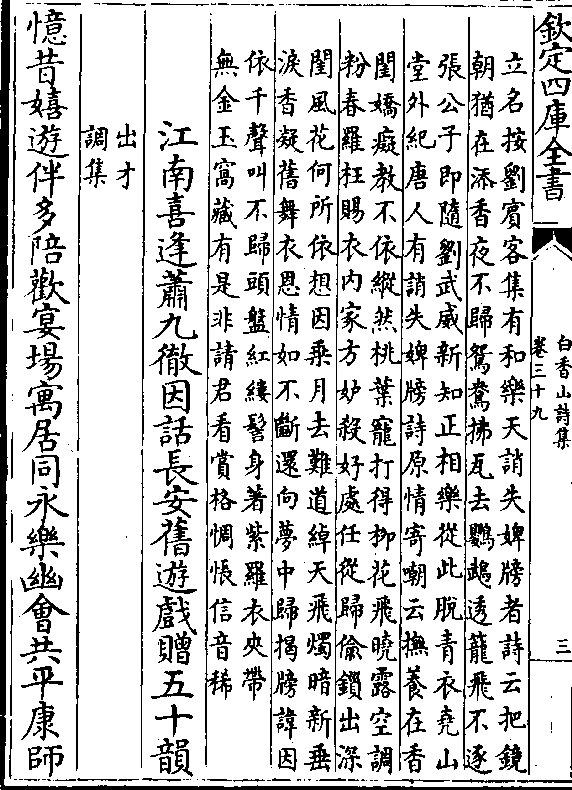 欽定四庫全書
白香山詩集
卷三十九
三
立名按劉賓客集有和樂天誚失婢牓者詩云把鏡
朝猶在添香夜不歸鴛鴦拂瓦去鸚鵡透籠飛不逐
張公子即隨劉武威新知正相樂從此脫青衣堯山
堂外紀唐人有誚失婢牓詩原情寄嘲云撫養在香
閨嬌癡教不依縱然桃葉寵打得柳花飛曉露空調
粉春羅枉賜衣内家方妒殺好處任從歸偷鎖出深
閨風花何所依想因乗月去難道綽天飛燭暗新垂
淚香凝舊舞衣恩情如不斷還向夢中歸揭牓諱因
依千聲叫不歸頭盤紅縷髻身著紫羅衣夾帶
無金玉窩藏有是非請君看賞格惆悵信音稀
江南喜逢蕭九徹因話長安舊遊戲贈五十韻
出才
調集
憶昔嬉遊伴多陪歡宴場寓居同永樂幽會共平康師